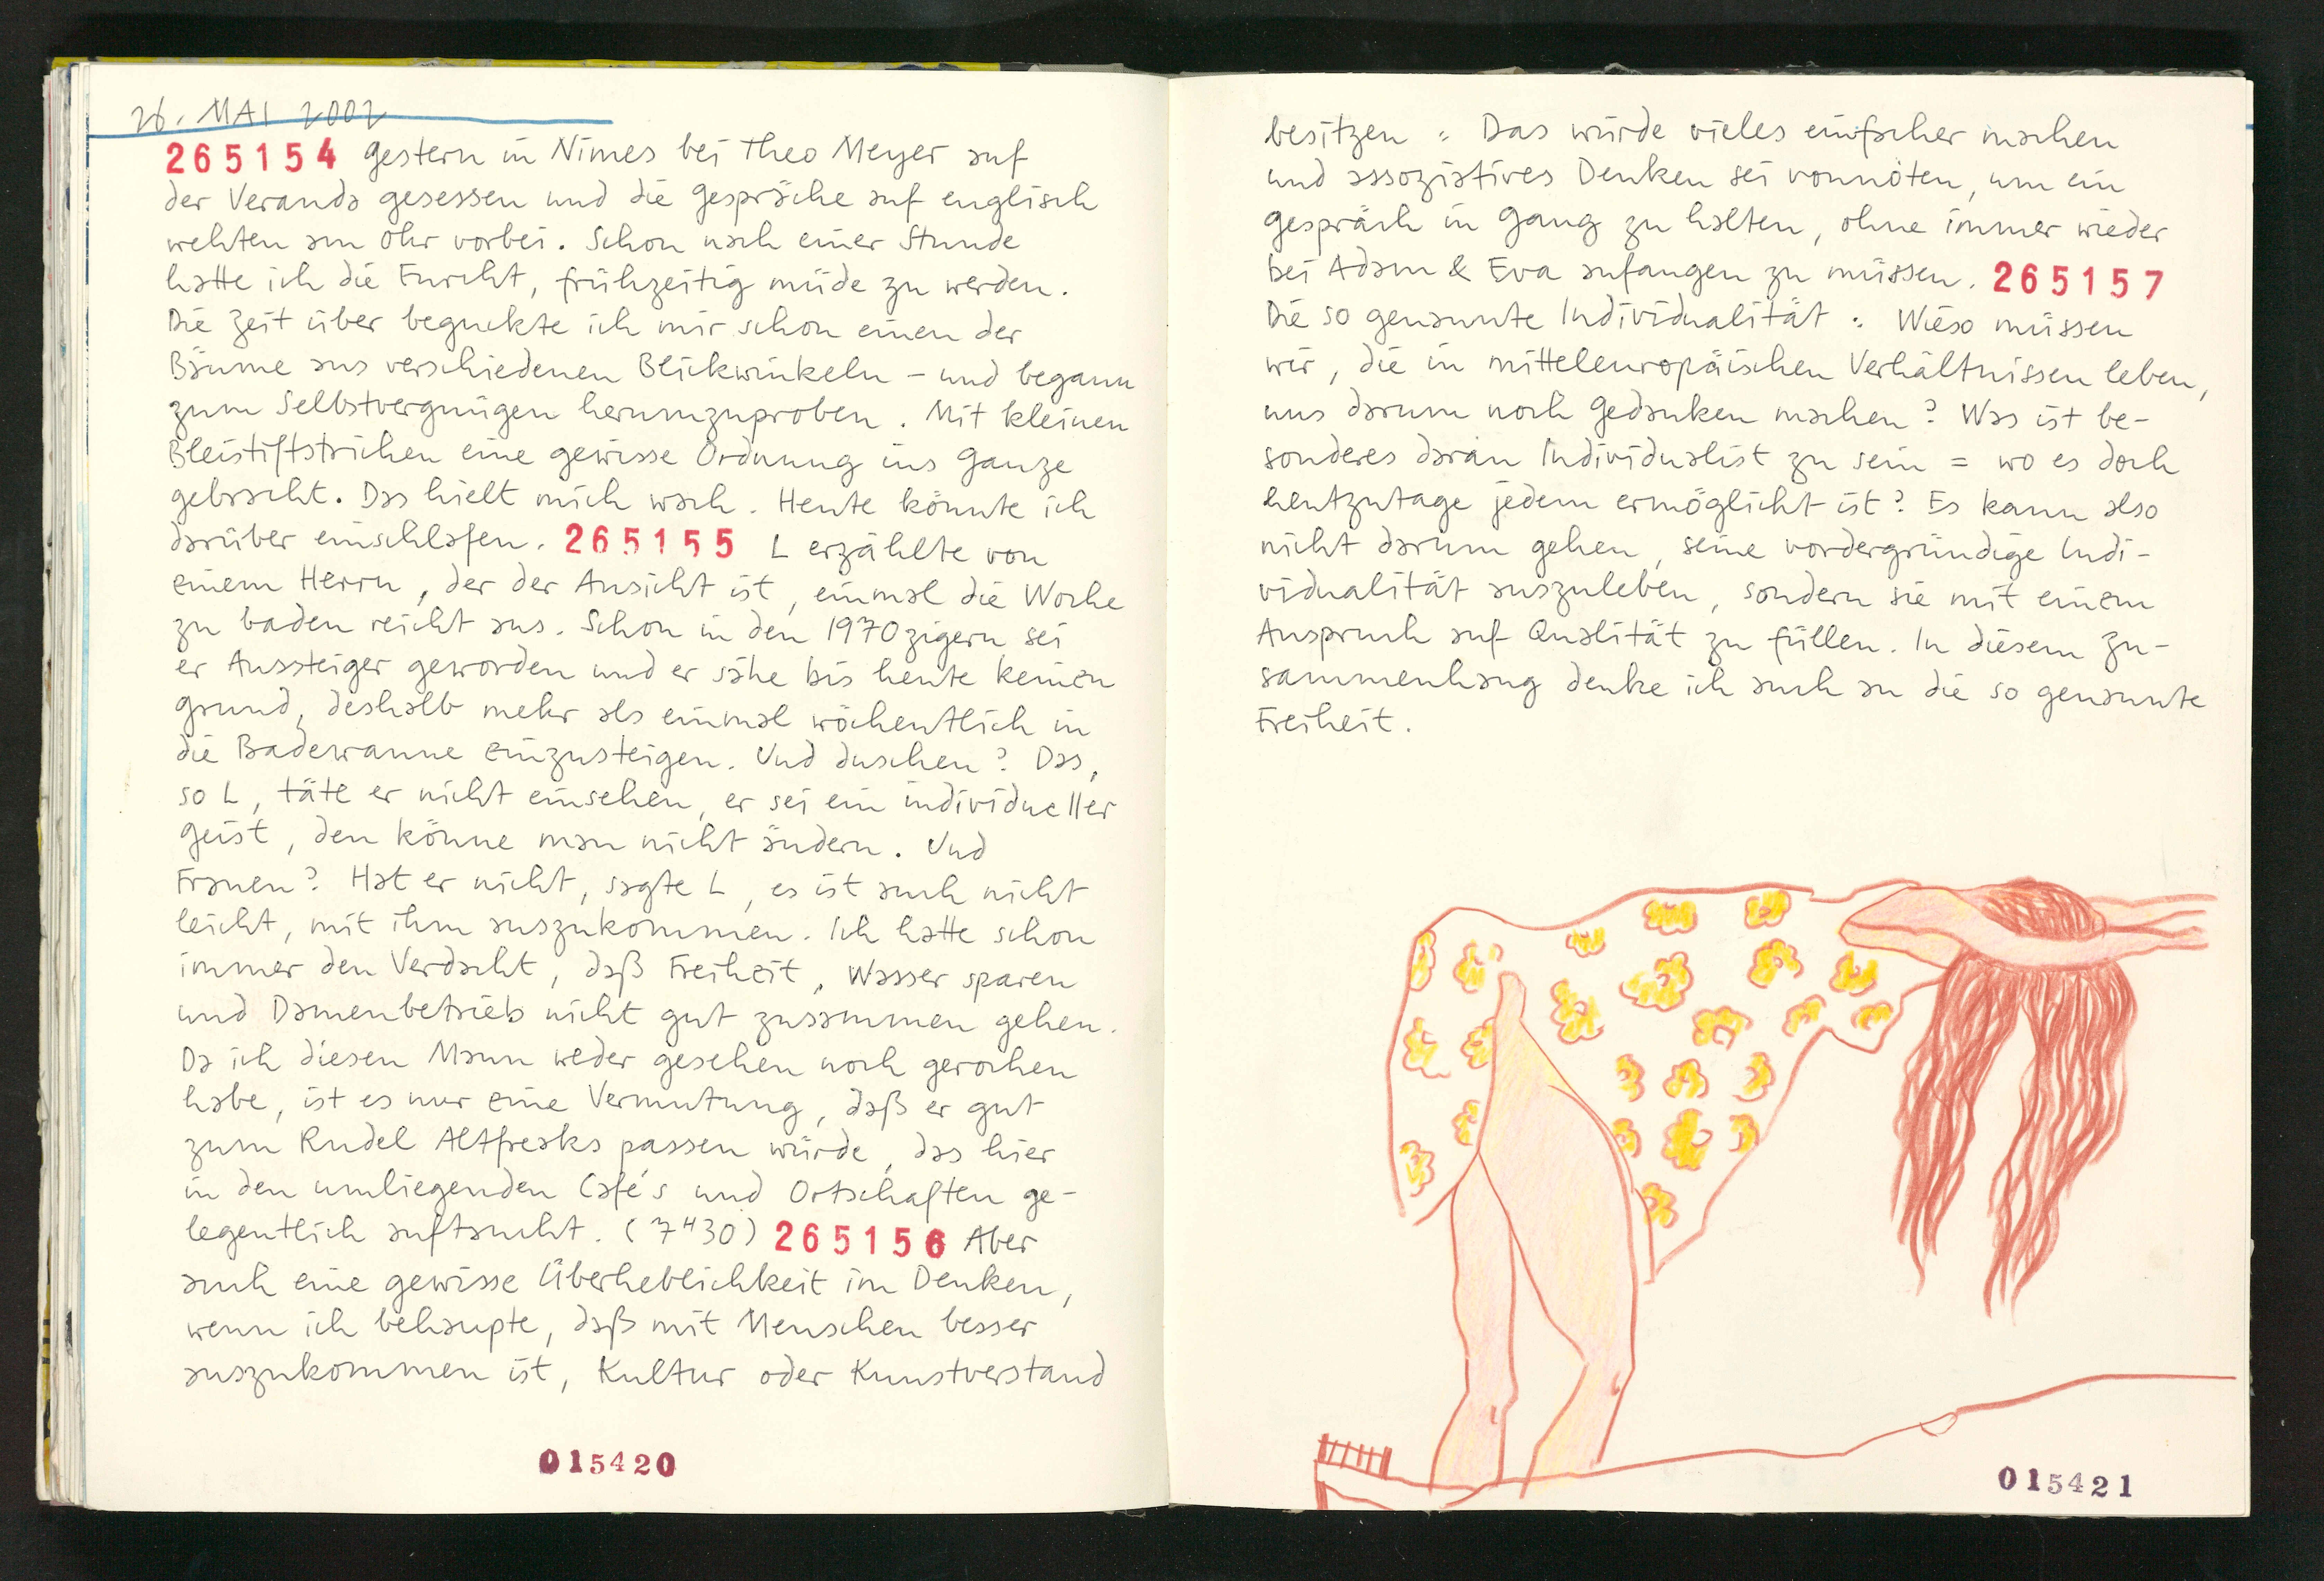 26. MAI 2002
265154 gestern in Nimes bei Theo Meyer auf
der Veranda gesessen und die gespräche auf englisch
wehten am Ohr vorbei. Schon nach einer Stunde
hatte ich die Furcht, frühzeitig müde zu werden.
Die Zeit über beguckte ich mir schon einen der
Bäume aus verschiedenen Blickwinkeln – und begann
zum Selbstvergnügen herumzuproben. Mit kleinen
Bleistiftstrichen eine gewisse Ordnung ins ganze
gebracht. Das hielt mich wach. Heute könnte ich
darüber einschlafen. 265155 L erzählte von
einem Herrn, der der Ansicht ist, einmal die Woche
zu baden reicht aus. Schon in den 1970zigern sei
er Aussteiger geworden und er sähe bis heute keinen
grund, deshalb mehr als einmal wöchentlich in
die Badewanne einzusteigen. Und duschen? Das,
so L, täte er nicht einsehen, er sei ein individueller
geist, den könne man nicht ändern. Und
Frauen? Hat er nicht, sagte L, es ist auch nicht
leicht, mit ihm auszukommen. Ich hatte schon
immer den Verdacht, daß Freiheit, Wasser sparen
und Damenbetrieb nicht gut zusammen gehen.
Da ich diesen Mann weder gesehen noch gerochen
habe, ist es nur eine Vermutung, daß er gut
zum Rudel Altfreaks passen würde, das hier
in den umliegenden Café's und Ortschaften ge-
legentlich auftaucht. (7H30) 265156 Aber
auch eine gewisse Überheblichkeit im Denken,
wenn ich behaupte, daß mit Menschen besser
auszukommen ist, Kultur oder Kunstverstand
015420
besitzen : Das würde vieles einfacher machen
und assoziatives Denken sei vonnöten, um ein
gespräch in gang zu halten, ohne immer wieder
bei Adam & Eva anfangen zu müssen. 265157
Die so genannte Individualität : Wieso müssen
wir, die in mitteleuropäischen Verhältnissen leben,
uns darum noch gedanken machen? Was ist be-
sonderes daran Individualist zu sein = wo es doch
heutzutage jedem ermöglicht ist? Es kann also
nicht darum gehen, seine vordergründige Indi-
vidualität auszuleben, sondern sie mit einem
Anspruch auf Qualität zu füllen. In diesem Zu-
sammenhang denke ich auch an die so genannte
Freiheit.
015421